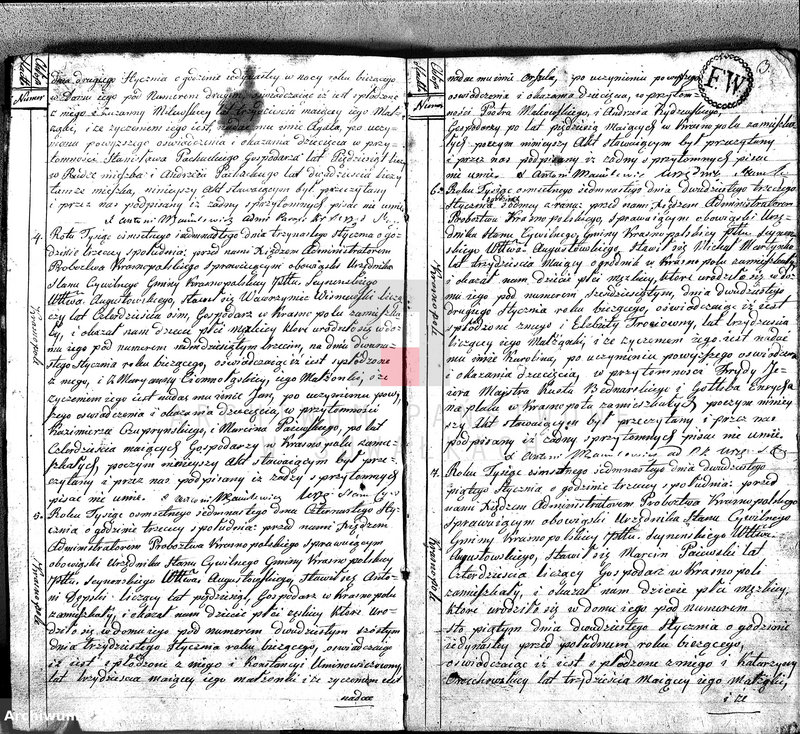 dnia drugiego Stycznia o godzinie jedynastey w nocy roku bieżącego
w Domu iego pod Numerem drugim oświadczaiąc iż iest spłodzone
z niego i Zuzanny Milewskiey lat trzydzieścia maiącey iego Mał-
żonki, i że życzeniem iego iest nadać mu imie Agata, po uczy-
nieniu powyższego oświadczenia i okazania dziecięcia w przy-
tomności Stanisława Pachuckiego Gospodarza lat Pięćdziesiąt
i Andrzeia Pachuckiego lat dwadzieścia liczy
ninieyszy Akt stawaiącym był przeczytany
i przez nas podpisany iż żadny z przytomnych pisać nie umie
X Antoni Maniewicz
4.
Krasnopole
Roku Tysiąc ośmsetnego siedmnastego dnia trzynastego Stycznia o go-
dzinie trzeciey z południa: przed nami Xiędzem Administratorem
Probostwa Krasnopolskiego sprawuiącym obowiązki Urzędnika
Stanu Cywilnego Gminy Krasnopolskiey Pttu. Seynenskiego
Wttwa Augustowskiego, stawił się Wawrzyniec Wisniewski liczą-
cy lat Czterdzieścia ośm, Gospodarz w Krasnopolu zamieszka-
ły, i okazał nam dziecie płci męzkiey które urodziło się w do-
mu iego pod numerem ośmdziesiątym trzecim, na dniu dwuna-
stego Stycznia roku bieżącego, oświadczaiąc iż iest spłodzone
z niego, i z Maryanny Czomolągskiey iego Małżonki, i że
życzeniem iego iest nadać mu imie Jan, po uczynieniu powyż-
szego oświadczenia i okazania dziecięcia, w przytomności
Kazimierza Czuprynskiego, i Marcina Paiewskiego, po lat
Czterdzieścia maiących Gospodarzy w Krasnopolu zamie-
szkałych, poczym ninieyszy Akt stawaiącym był prze-
czytany i przez nas podpisany iż żadny z przytomnych
pisać nie umie. X Antoni Maniewicz Urzę: Stanu Cyw
5.
Krasnopole
Roku Tysiąc ośmsetnego siedmnastego dnia Czternastego Sty-
cznia o godzinie trzeciey z południa: przed nami Xiędzem
Administratorem Probostwa Krasnopolskiego sprawuiącym
obowiązki Urzędnika Stanu Cywilnego Gminy Krasnopolskiey
Pttu. Seynenskiego Wttwa Augustowskiego, stawił się Anto-
ni Depski liczący lat pięćdziesiąt, Gospodarz w Krasnopolu
zamieszkały, i okazał nam dziecie płci żęńskiey które Uro-
dziło się w domu iego pod numerem dwudziestym szóstym
dnia trzydziestego Stycznia roku bieżącego, oświadczaiąc
iż iest spłodzone z niego i Konstancyi Uminowiczowney
lat trzydzieścia maiącey iego małżonki i że życzeniem iest
nadać
3.
FW
nadać mu imie Orsula, po uczynieniu powyższego
oświadczenia i okazania dziecięcia, w przytom-
ności Piotra Malewskiego, i Andrzeia Rydzewskiego,
Gospodarzy po lat pięćdziesiąt Maiących w Krasnopolu zamieszka-
łych poczym ninieyszy Akt stawaiącym był przeczytany
i przez nas podpisany iż żadny z przytomnych pisać
nie umie. X Antoni Maniewicz
6.
Krasnopole
Roku Tysiąc ośmsetnego siedmnastego dnia dwudziestego trzeciego
Stycznia o godzinie siodmey z rana: przed nami Xiędzem Administratorem
Probostwa Krasnopolskiego, sprawuiącym obowiązki Urzę-
dnika Stanu Cywilnego, Gminy Krasnopolskiey Pttu. Seynen-
skiego Wttwa. Augustowskiego, stawił się Michał Marcynko
lat trzydzieścia Maiący ogrodnik w Krasnopolu zamieszkały
i okazał nam dziecie płci męzkiey, które urodziło się w do-
mu iego pod numerem, Szesdziesiątym, dnia dwudziestego
drugiego Stycznia roku bieżącego, oświadczaiąc iż iest
spłodzone z niego i Elżbiety Trociowny, lat trzydzieścia
liczącey iego Małżonki, i że życzeniem iego iest nadać
mu imie Karolina, po uczynieniu powyższego oświadcze-
i okazania dziecięcia, w przytomności Frydy Je-
ziora Maystra Kusta Bednarskiego i Gottliba Encycha
na placu w Krasnopolu zamieszkałych poczym niniey-
szy Akt stawaiącym był przeczytany i przez nas
podpisany iż żadny z przytomnych pisać nie umie.
X Antoni Maniewicz
7.
Krasnopole
Roku Tysiąc ośmsetnego siedmnastego dnia dwudziestego
piątego Stycznia o godzinie trzeciey z południa: przed
nami Xiędzem Administratorem Probostwa Krasnopolskiego
Sprawuiącym obowiązki Urzędnika Stanu Cywilnego
Gminy Krasnopolskiey Pttu. Seynenskiego Wttwa.
Augustowskiego, Stawił się Marcin Paiewski lat
Czterdzieścia liczący Gospodarz w Krasnopoli
zamieszkały, i okazał nam dziecie płci męzkiey,
które urodziło się w domu iego pod numerem
sto piątym dnia dwudziestego Stycznia o godzinie
iedynastey przed południem roku bieżącego,
oświadczaiąc iż iest spłodzone z niego i Katarzyny
Orzechowskiey lat trzydzieścia Maiącey iego Małżonki,
i że